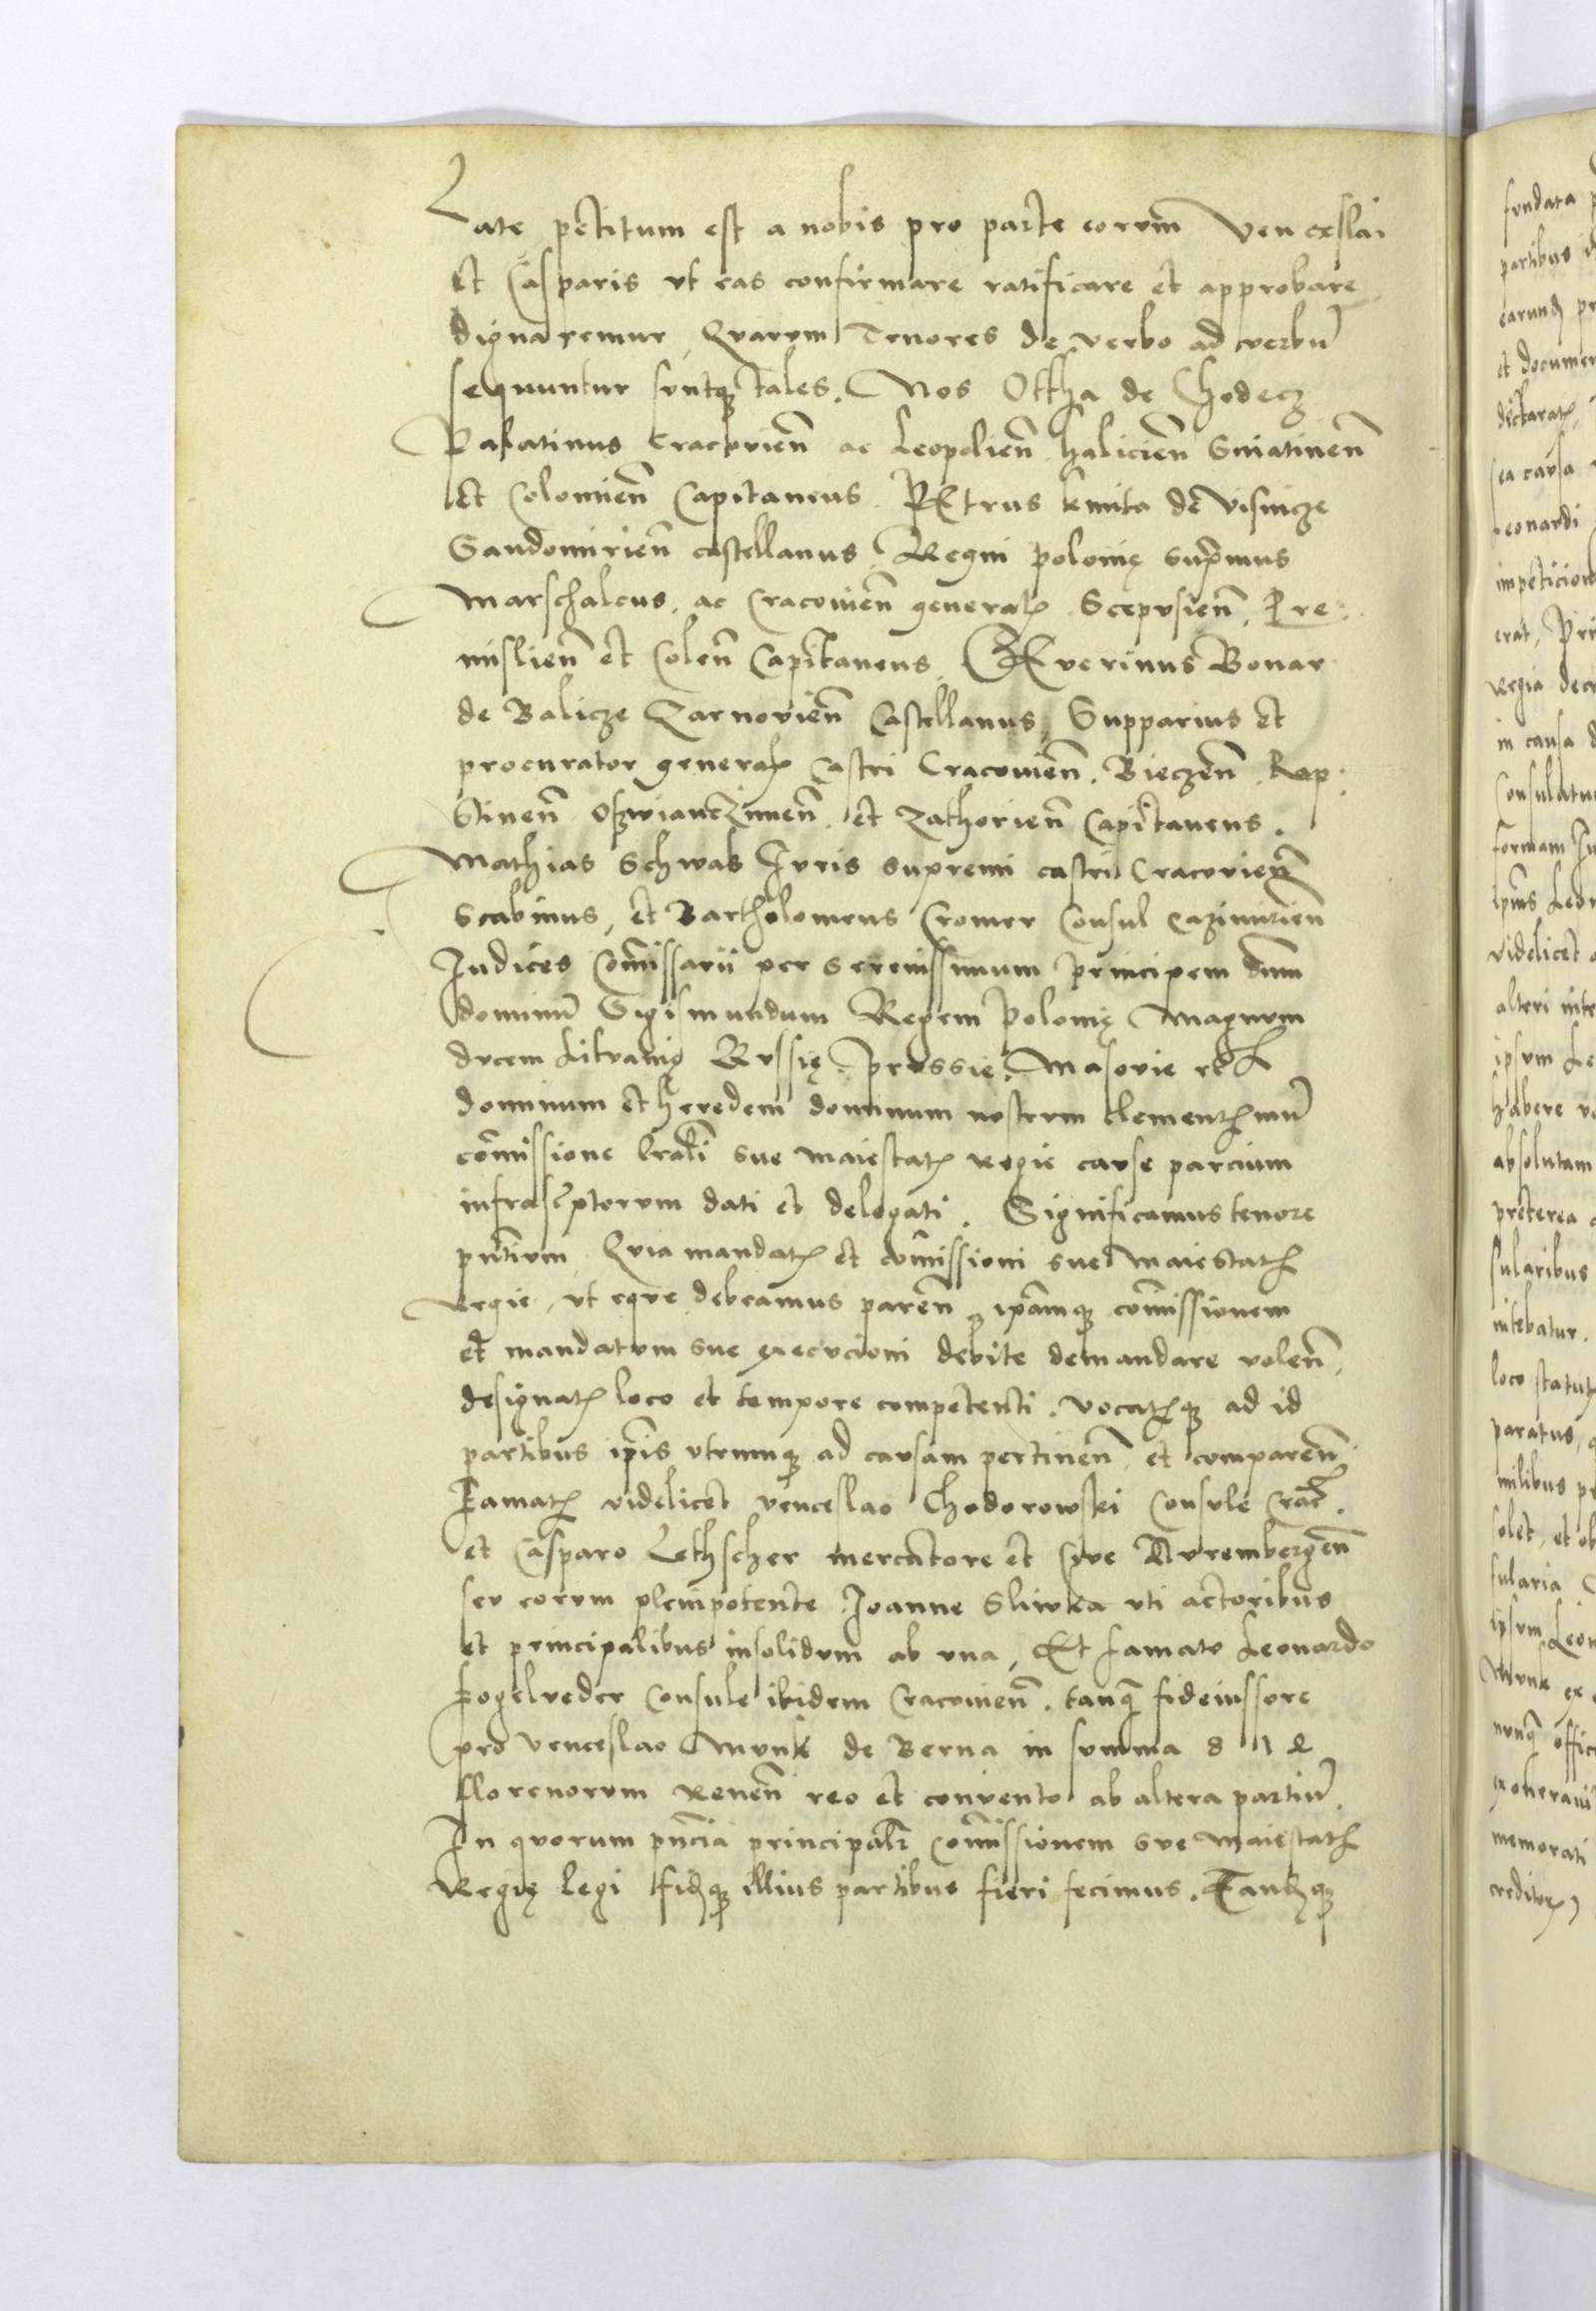 Late petitum est a nobis pro parte eorum Venceslai
et Casparis ut eas confirmare ratificare et approbare
dignaremur, Quarum Tenores de verbo ad verbū
sequuntur suntq̨ tales. Nos Ottha de Chodecz
Palatinus Cracovieñ ac Leopolieñ halicieñ Sniatineñ
et Colomieñ Capitaneus. PEtrus kmita de Visnicze
Sandomirieñ castellanus, Regni polonię supremus
Marschalcus, ac Cracovieñ generalꝭ Scepusieñ, Pre
mislieñ et Coleñ Capitaneus, SEverinus Bonar
de Balicze Zarnovieñ Castellanus, Supparius et
procurator generalꝭ Castri Cracovieñ. Bieczeñ. Rap
stineñ Oszwiantzimeñ. et Zathorieñ Capitaneus.
Mathias Schwab Iuris supremi castri Cracovieñ
Scabinus, et Bartholomeus Cromer Consul Cazimirieñ
Iudices Com̄issarii per serenissimum principem dnm
dominū Sigismundum Regem polonię Magnum
ducem Lituanię Russię. prussie, Masovie etc
dominum et heredem dominum nostrum clementꝭimū
com̄issione sue maiestatꝭ regie cause parcium
infrascriptorum dati et delegati. Significamus tenore
pn̄tium, Quia mandatꝭ et com̄issioni sue Maiestatꝭ
regie, ut eque debeamus pareñ, ipamq̨ com̄issionem
et mandatum sue execucioni debite demandare voleñ,
designatꝭ loco et tempore competenti. vocatꝭq̨ ad id
partibus ip̄is utrumq̨ ad causam pertineñ et compareñ
Famatꝭ videlicet venceslao Chodorowski Consule Crac̄.
et Casparo Lethscher mercatore et Cive Nurembergeñ
seu eorum plenipotente Ioanne Sliwka uti actoribus
et principalibus insolidum ab una, Et famato Leonardo
Fogelveder Consule ibidem Cracovieñ. tanq̄ fideiussore
pro venceslao Munk de Berna in summa
florenorum Reneñ reo et convento ab altera partiū.
In quorum pn̄cia principalr̄ com̄issionem sue maiestatꝭ
Regię legi fidꝭq̨ illius partibus fieri fecimus.